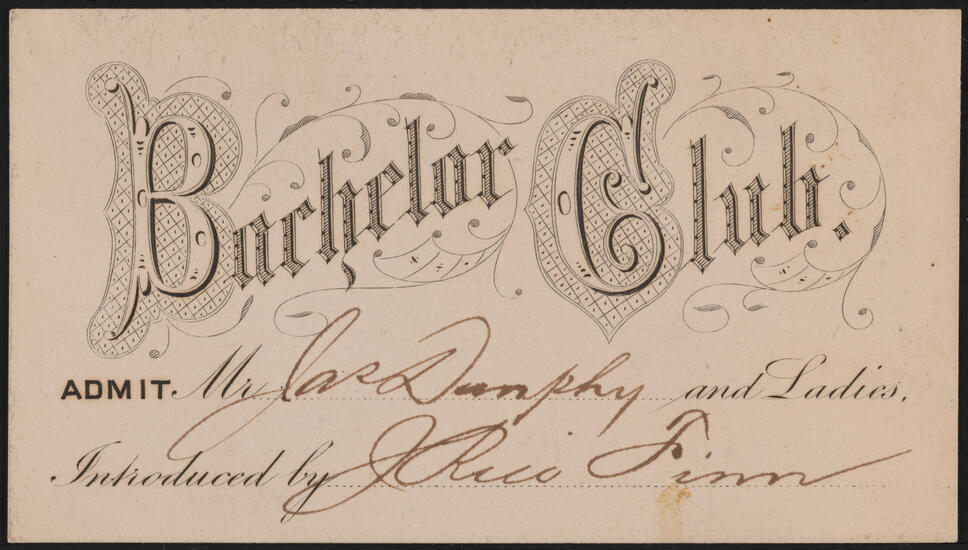 Bachelor Club.
ADMIT. Mr Jas Dunphy and Ladies.
Introduced by J Rice Finn